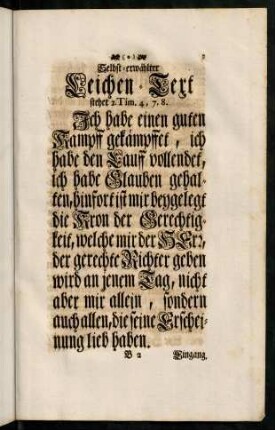 Selbst-erwählter
Leichen-Text
stehet 2 Tim. 4, 7. 8.
Ich habe einen guten
Kampff gekämpffet, ich
habe den Lauff vollendet,
ich habe Glauben gehal-
ten, hinfort ist mir beygelegt
die Kron der Gerechtig-
keit, welche mir der HErr,
der gerechte Richter geben
wird an jenem Tag, nicht
aber mir allein, sondern
auch allen, die seine Erschei-
nung lieb haben.
B 2 Eingang.